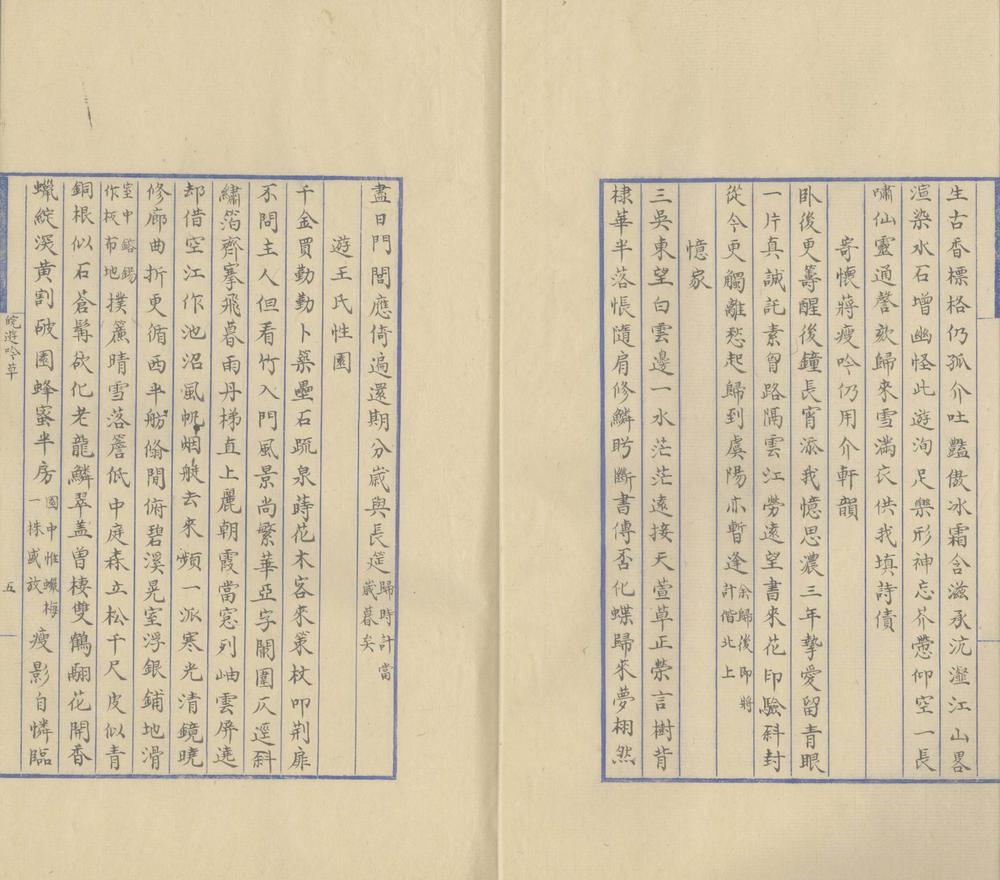 生古香標格仍孤介吐豔傲冰霜含滋承沆瀣江山畧
渲染水石增幽怪此遊洵足樂形神忘芥蔕仰空一長
嘯仙靈通謦欬歸來雪滿衣供我填詩債
寄懷蔣瘦吟仍用介軒韻
卧後更籌醒後鐘長宵添我憶思濃三年摯愛留青眼
一片真誠託素曾路隔雲江勞遠望書來花印驗斜封
從今更觸離愁起歸到虞陽亦暫逢余歸後即將計偕北上
憶家
三吳東望白雲邊一水茫茫遠接天萱草正榮言樹背
棣華半落悵隨肩修鱗盻斷書傳否化蝶歸來夢栩然
盡日門閭應倚遍還期分歲與長筵歸時計當歲暮矣
遊王氏性園
千金買勤勤卜築壘石疏泉蒔花木客來策杖叩荆扉
不問主人但看竹入門風景尚繁華亞字闌圍仄逕斜
繡箔齊搴飛暮雨丹梯直上麗朝霞當窓列岫雲屏遶
却借空江作池沼風帆烟艇去來頻一派寒光清鏡曉
修廊曲折更循西半舫翛閒俯碧溪晃室浮銀鋪地滑
室中鎔錫作板布地撲簾晴雪落簷低中庭森立松千尺皮似青
銅根似石蒼髯欲化老龍鱗翠盖曾棲雙鶴翮花開香
蠟綻深黃割破園蜂蜜半房園中惟蠟梅一株盛放瘦影自憐臨
皖遊吟草
五